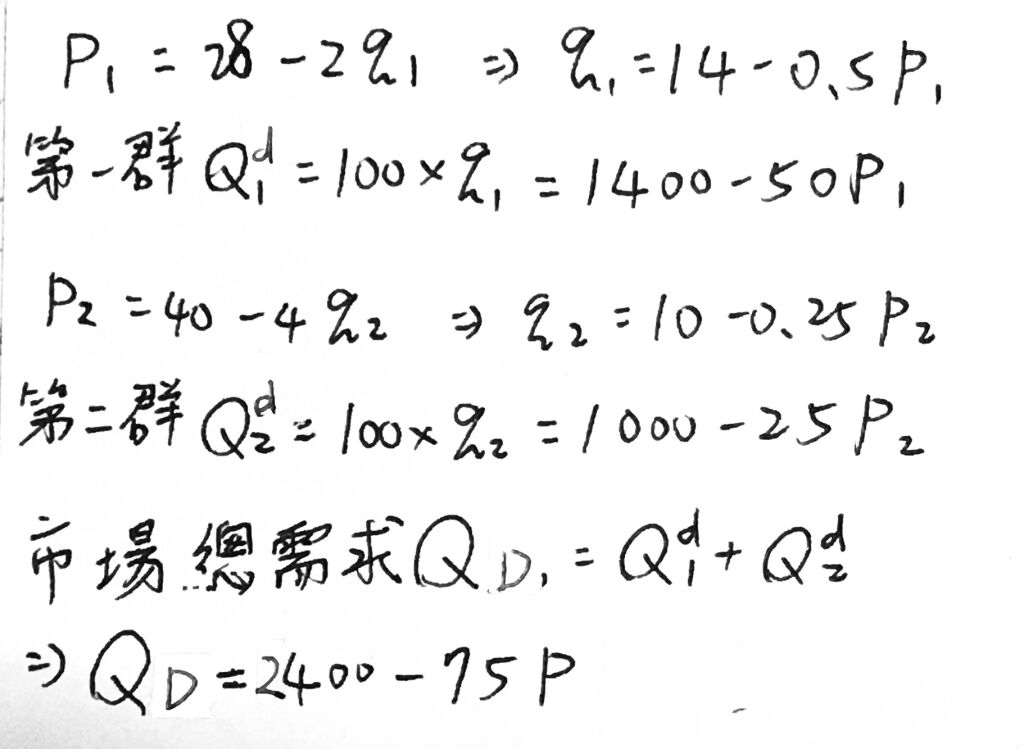 P₁ = 28 - 2q₁ ⇒ q₁ = 14 - 0.5P₁
第一群 Q₁ᵈ = 100 × q₁ = 1400 - 50P₁
P₂ = 40 - 4q₂ ⇒ q₂ = 10 - 0.25P₂
第二群 Q₂ᵈ = 100 × q₂ = 1000 - 25P₂
市場總需求 Q_D = Q₁ᵈ + Q₂ᵈ
⇒ Q_D = 2400 - 75P